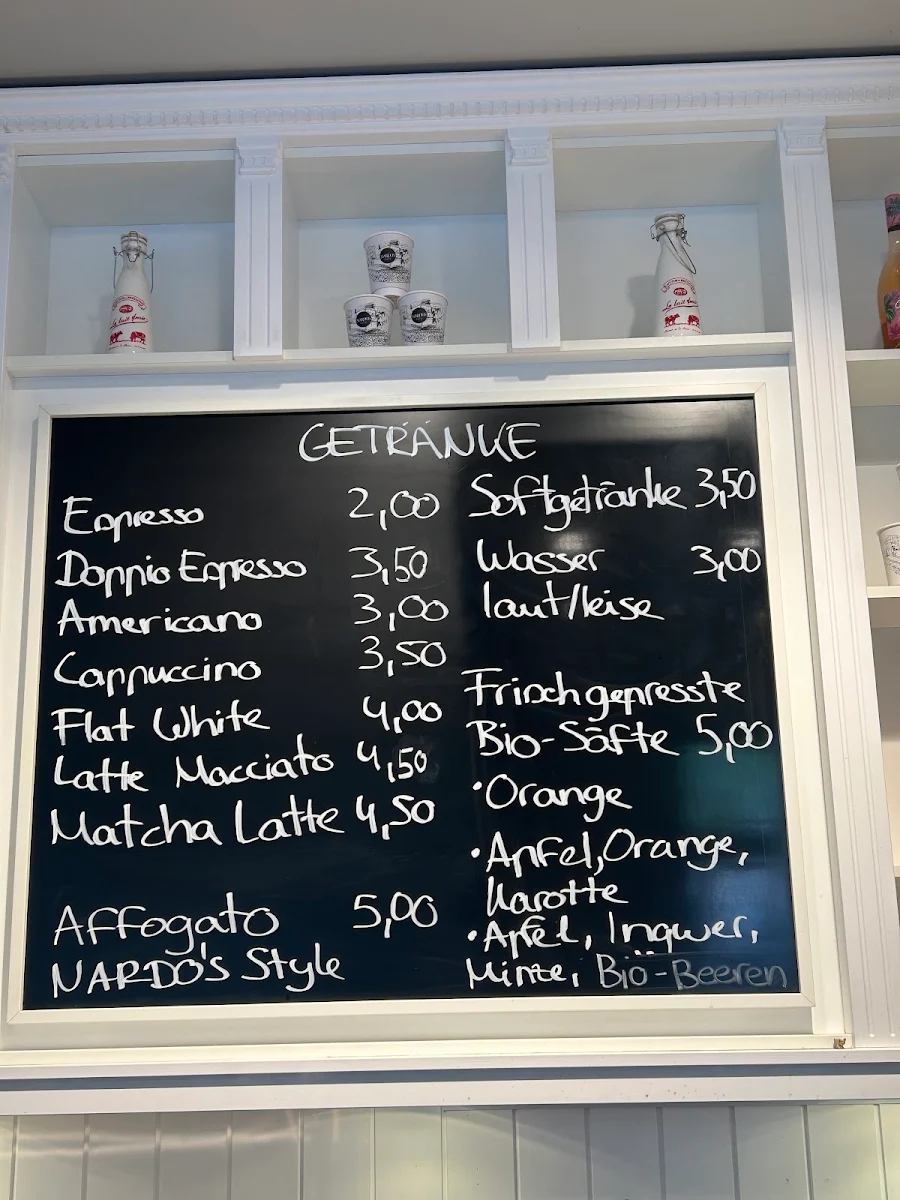 GETRÄNKE
Espresso 2,00
Doppio Espresso 3,50
Americano 3,00
Cappuccino 3,50
Flat White 4,00
Latte Macciato 4,50
Matcha Latte 4,50
Affogato 5,00
NARDO'S Style
Softgetränke 3,50
Wasser 3,00
laut/leise
Frisch gepresste
Bio-Säfte 5,00
•Orange
•Apfel, Orange,
Karotte
•Apfel, Ingwer,
Minze, Bio-Beeren